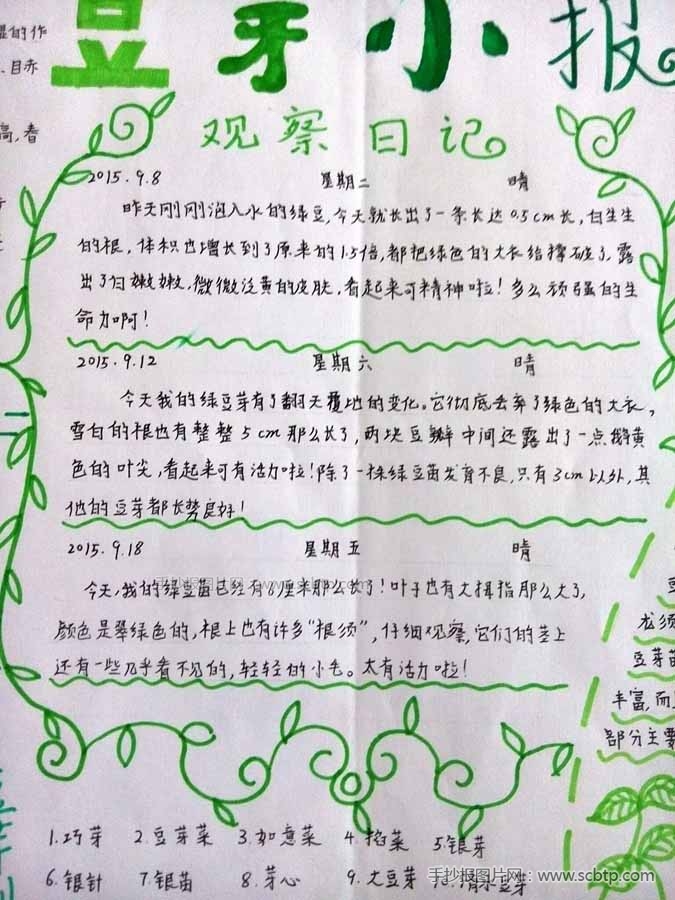 豆芽小报
观察日记
湿的作
、目赤
高,春
2015.9.8 星期二 晴
昨天刚刚泡入水的绿豆,今天就长出了一条长达0.5cm长,白生生
的根,体积也增长到了原来的1.5倍,都把绿色的大衣给撑破了,露
出了白嫩嫩,微微泛黄的皮肤,看起来可精神啦!多么顽强的生
命力啊!
2015.9.12 星期六 晴
今天我的绿豆芽有了翻天覆地的变化。它彻底丢弃了绿色的大衣,
雪白的根也有整整5cm那么长了,两块豆瓣中间还露出了一点鹅黄
色的叶尖,看起来可有活力啦!除了一株绿豆苗发育不良,只有3cm以外,其
他的豆芽都长势良好!
2015.9.18 星期五 晴
今天,我的绿豆苗已经有8厘米那么长了!叶子也有大拇指那么大了,
颜色是翠绿色的,根上也有许多“根须”,仔细观察,它们的茎上
还有一些几乎看不见的,轻轻的小毛。太有活力啦!
龙须
豆芽苗
丰富,而
部分主要
1.巧芽 2.豆芽菜 3.如意菜 4.掐菜 5.银芽
6.银针 7.银苗 8.芽心 9.大豆芽 10.清水豆芽
手抄报图片网:www.scbtp.com